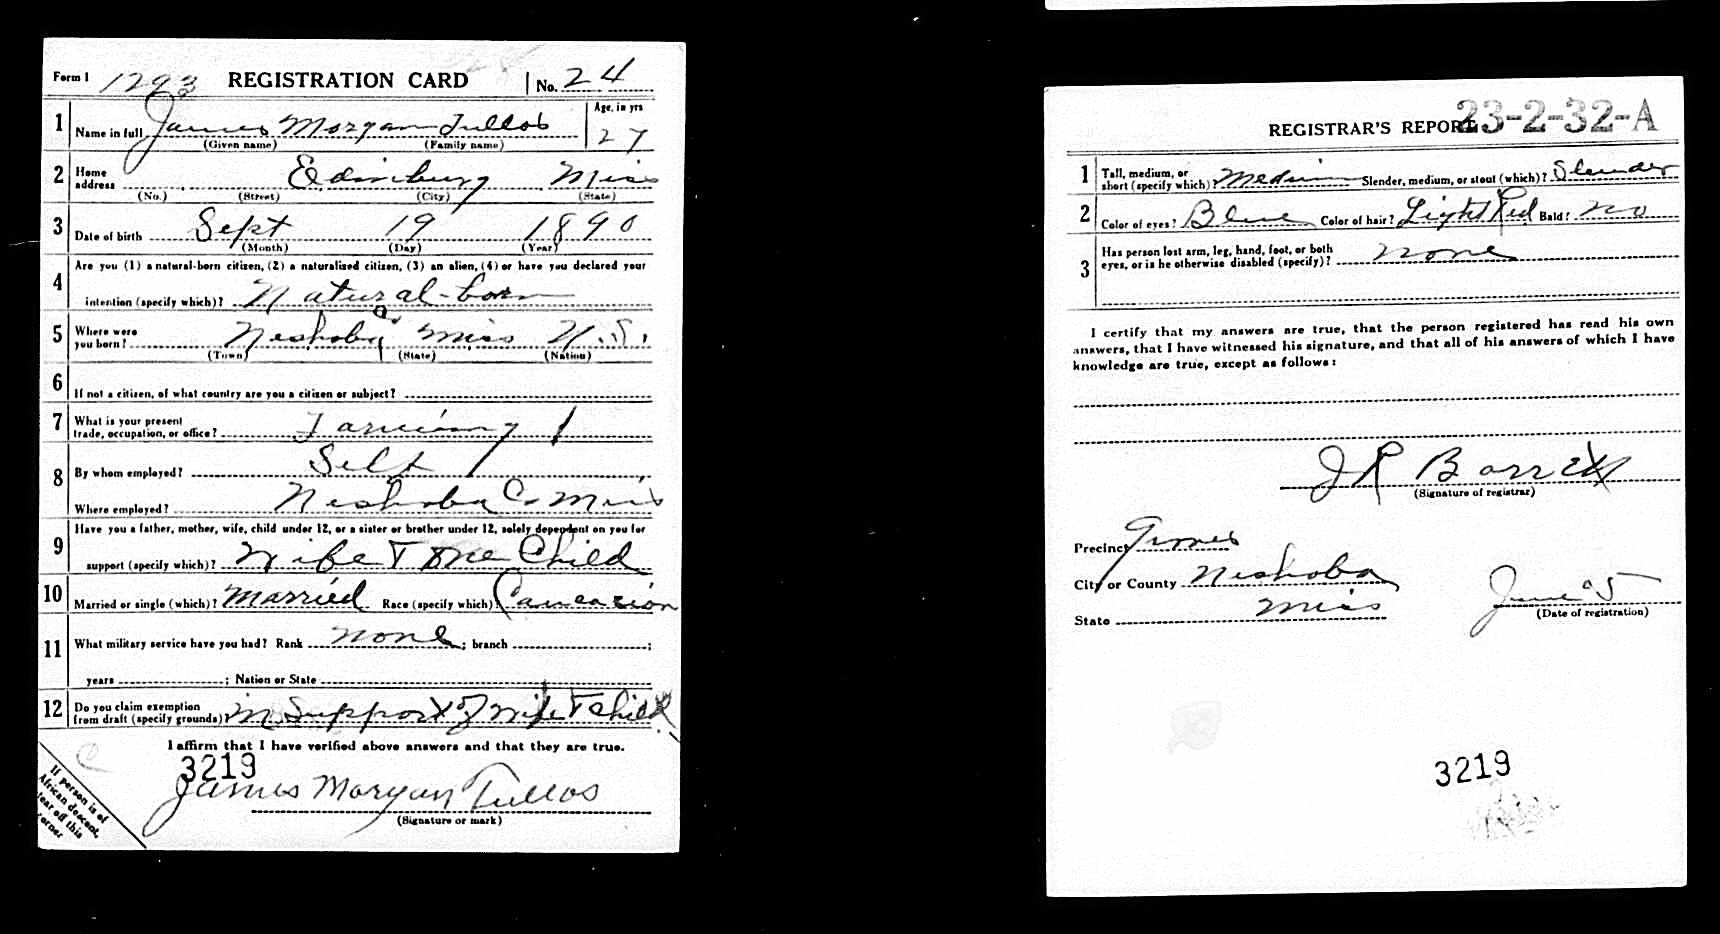 Form 1 1293 REGISTRATION CARD No. 24
1 Name in full James Morgan Tullos Age, in yrs 27
(Given name) (Family name)
2 Home address Edinburg Miss
(No.) (Street) (City) (State)
3 Date of birth Sept 19 1890
(Month) (Day) (Year)
4 Are you (1) a natural-born citizen, (2) a naturalized citizen, (3) an alien, (4) or have you declared your
intention (specify which)? Natural-born
5 Where were you born? Neshoba Miss U.S.
(Town) (State) (Nation)
6 If not a citizen, of what country are you a citizen or subject?
7 What is your present
trade, occupation, or office? Farming 1
8 By whom employed? Self
Where employed? Neshoba Co Miss
9 Have you a father, mother, wife, child under 12, or a sister or brother under 12, solely dependent on you for
support (specify which)? Wife & One Child
10 Married or single (which)? Married Race (specify which)? Caucasion
11 What military service have you had? Rank none ; branch ;
years ; Nation or State
12 Do you claim exemption
from draft (specify grounds)? Support of wife & child
I affirm that I have verified above answers and that they are true.
3219
James Morgan Tullos
(Signature or mark)
If person is of
African descent,
tear off this
corner
23-2-32-A
REGISTRAR'S REPORT
1 Tall, medium, or
short (specify which)? Medium Slender, medium, or stout (which)? Slender
2 Color of eyes? Blue Color of hair? Light Red Bald? no
3 Has person lost arm, leg, hand, foot, or both
eyes, or is he otherwise disabled (specify)? none
I certify that my answers are true, that the person registered has read his own
answers, that I have witnessed his signature, and that all of his answers of which I have
knowledge are true, except as follows:
J R Barrett
(Signature of registrar)
Precinct
City or County Neshoba
State Miss
June 5
(Date of registration)
3219